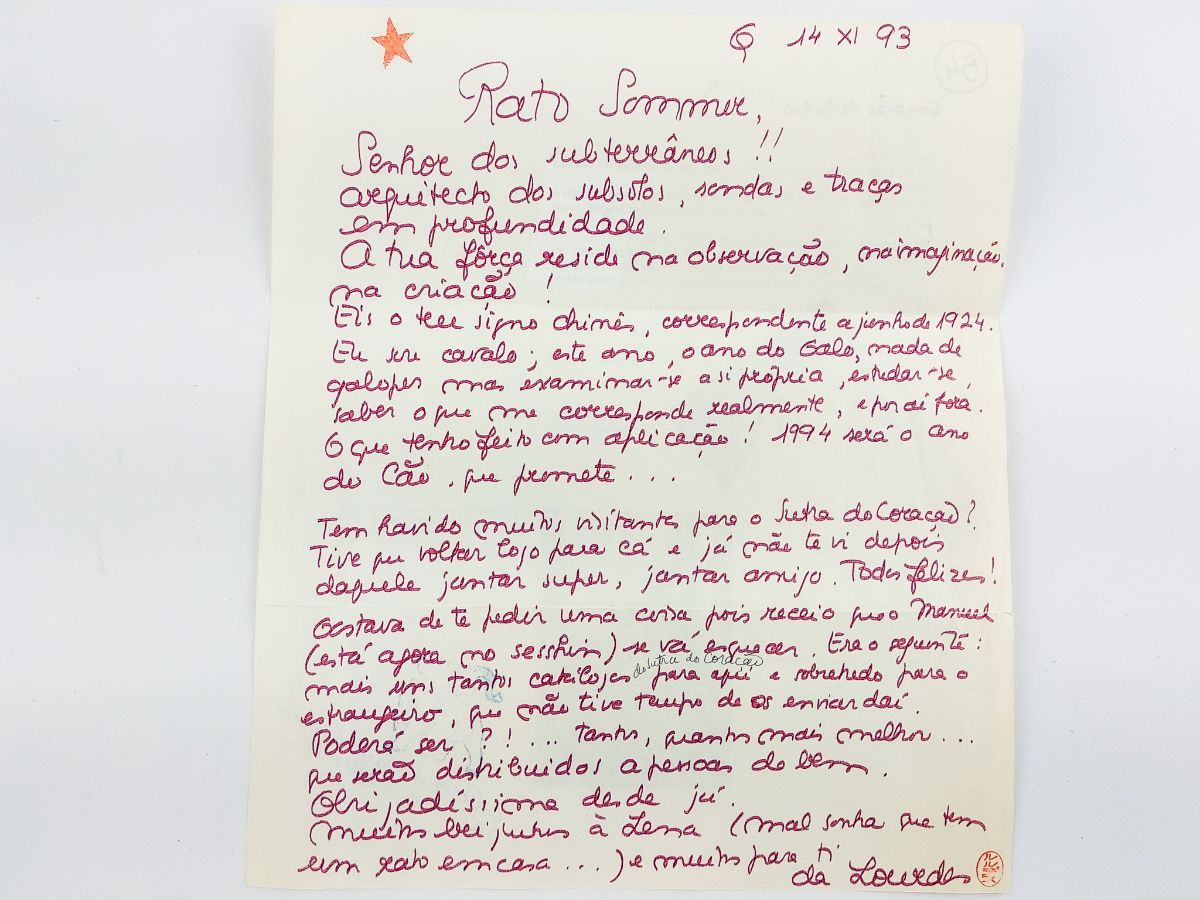 14 XI 93
Rato Sommer,
Senhor dos subterrâneos !!
arquitecto dos subsolos, sondas e traças
em profundidade.
A tua fôrça reside na observação, na imaginação,
na criação !
Eis o teu signo chinês, correspondente a junho de 1924.
Eu sou cavalo; este ano, o ano do Galo, nada de
galopes mas examinar-se a si própria, estudar-se,
saber o que me corresponde realmente, e por aí fora.
O que tenho feito com aplicação! 1994 será o ano
do Cão, que promete...
Tem havido muitos visitantes para o Sutra do Coração?
Tive que voltar logo para cá e já não te vi depois
daquele jantar super, jantar amigo. Todos felizes!
Gostava de te pedir uma coisa pois receio que o Manuel
(está agora no sesshin) se vá esquecer. Era o seguinte:
do Sutra do Coração
mais uns tantos catálogos para aqui e sobretudo para o
estrangeiro, que não tive tempo de os enviar daí.
Poderá ser ?! ... tantos, quantos mais melhor...
que serão distribuidos a pessoas do bem.
Obrigadíssima desde já.
Muitos beijinhos à Lena (mal sonha que tem
um rato em casa...) e muitos para ti
da Lourdes
54
Sombras deitadas